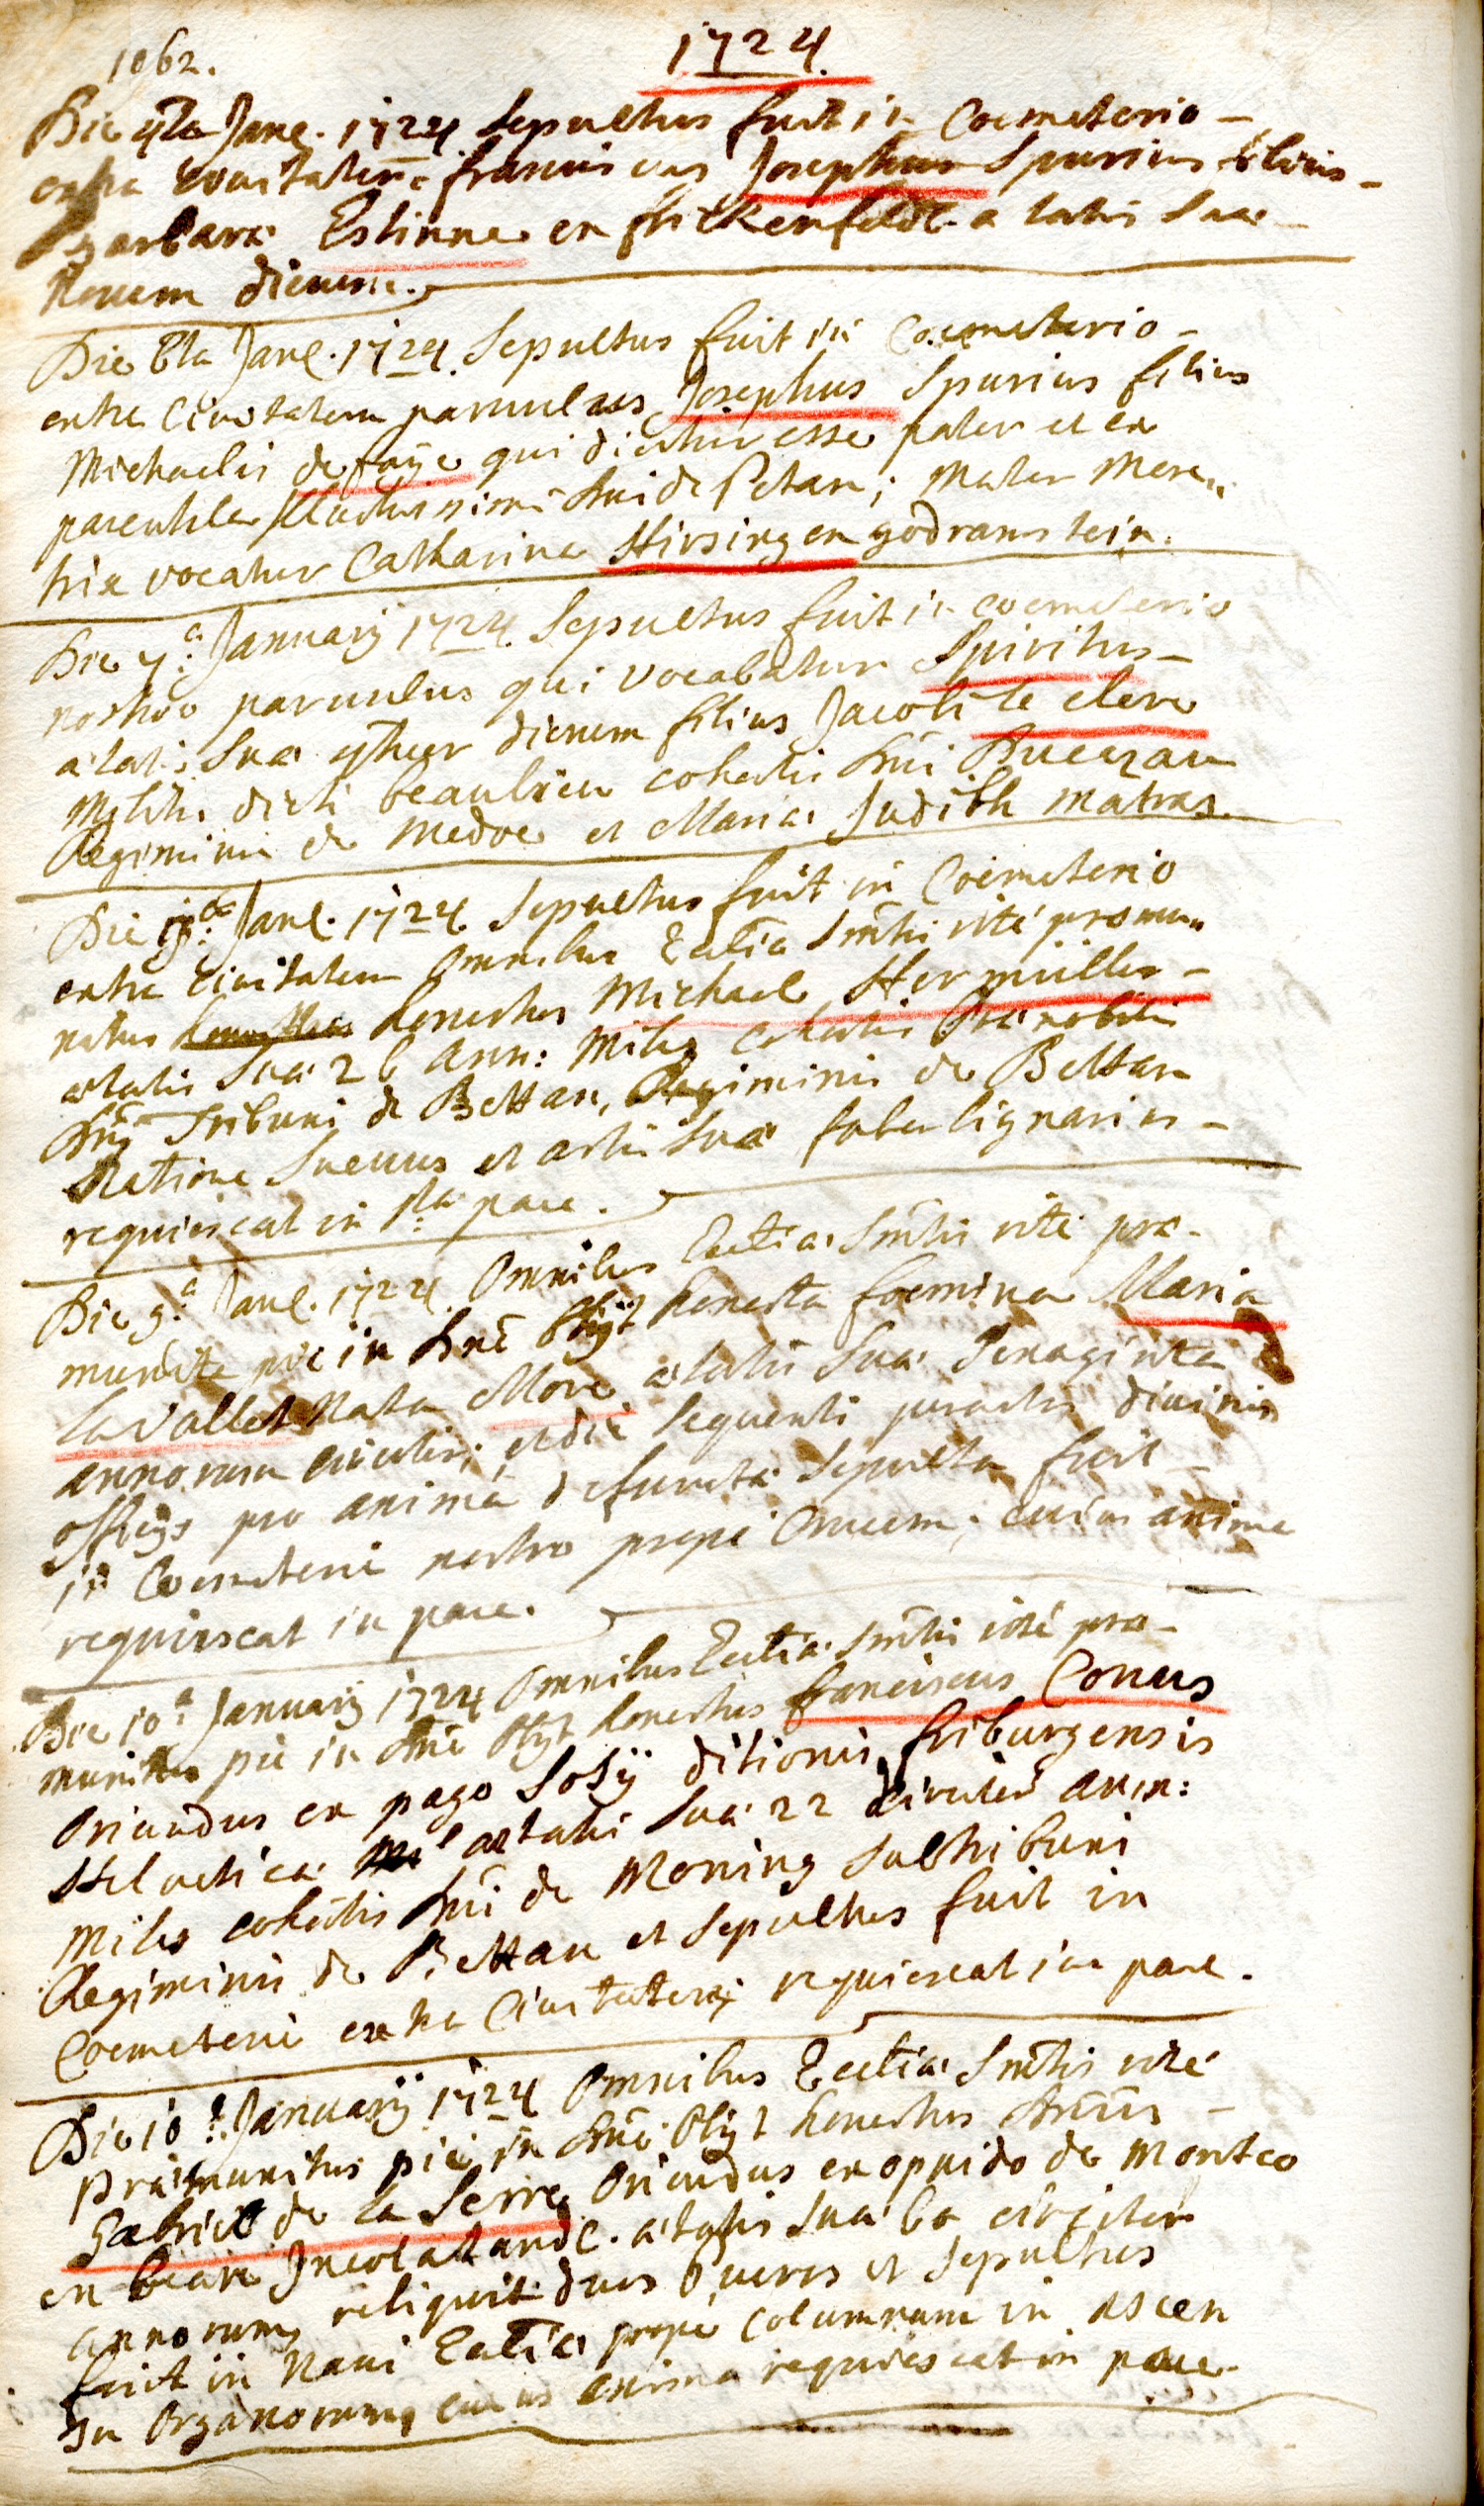 1062.
1724.
Die 4ta Janr. 1724 Sepultus fuit in Coemeterio -
extra civitatem Josephus Spurius filius -
Barbara Estinne ex flickenfeldt a tatis suae
Novem dierum.
Die 6ta Janr. 1724. Sepultus fuit in Coemeterio -
extra Civitatem parvulus Josephus Spurius filius
Michaelis de faÿe qui dicitur esse pater et ex
parentela Dni de Petan; Mater Mere„
trix vocatur Catharina Hirsing ex godramstein.
Die 7.a Januarij 1724. Sepultus fuit in coemeterio
nostro parvulus qui vocabatur Spiritus -
a'tatis sua' dierum filius Jacobi le clerc
Militis dicti beaulieu cohortis Dni
Regiminis de Medoc et Maria' Judith Matras.
Die Janr. 1724 Sepultus fuit in Coemeterio
extra Civitatem Omnibus Eccl̄ia' Sm̄tis rité promu„
nitus honestus Michael Hermüller -
a'tatis sua' 26 Ann: Miles Cohortis Pra'nobilis
Dnj Tribuni de Bettan, Regiminis de Bettan
Natione Suevus et artis sua' faber lignarius -
requiescat in sta. pace.
Die 9.a Janr. 1724. Omnibus Eccl̄ia' Sm̄tis rité pra'-
munita pie in Dnō Obijt honesta foemina Maria
La Vallet Nata More a'tatis Sua' Senaginta
annorum circiter; et die sequenti peractis divinis
officijs pro anima defuncta' Sepulta fuit -
in Coemeterio nostro propé Crucem; cuius anima
requiescat in pace.
Die 10.a Januarij 1724 Omnibus Eccl̄ia' Sm̄tis rité pra'-
munitus pié in Dnō Obijt honestus franciscus Conus
Oriundus ex pago Sosÿ ditionis friburgensis
Helvetica' a'tatis Sua' 22 circiter ann:
Miles cohortis Dni de Moning Subtribuni
Regiminis de Bettan et Sepultus fuit in
Coemeterio extra Civitatem requiescat in pace.
Die 10.a Januarij 1724 Omnibus Eccl̄ia' Sm̄tis rité
Pra'munitus pié in Dnō Obijt honestus Dnūs -
Gabriel de La Serre Oriundus ex oppido de Monteo
en bearn Incola Land. a'tatis Sua' 60 circiter
annorum, reliquit duos Pueros et Sepultus
fuit in Navi Eccl̄ia' propé Columnam in ascen
su Organorum, cuius anima requiescat in pace.